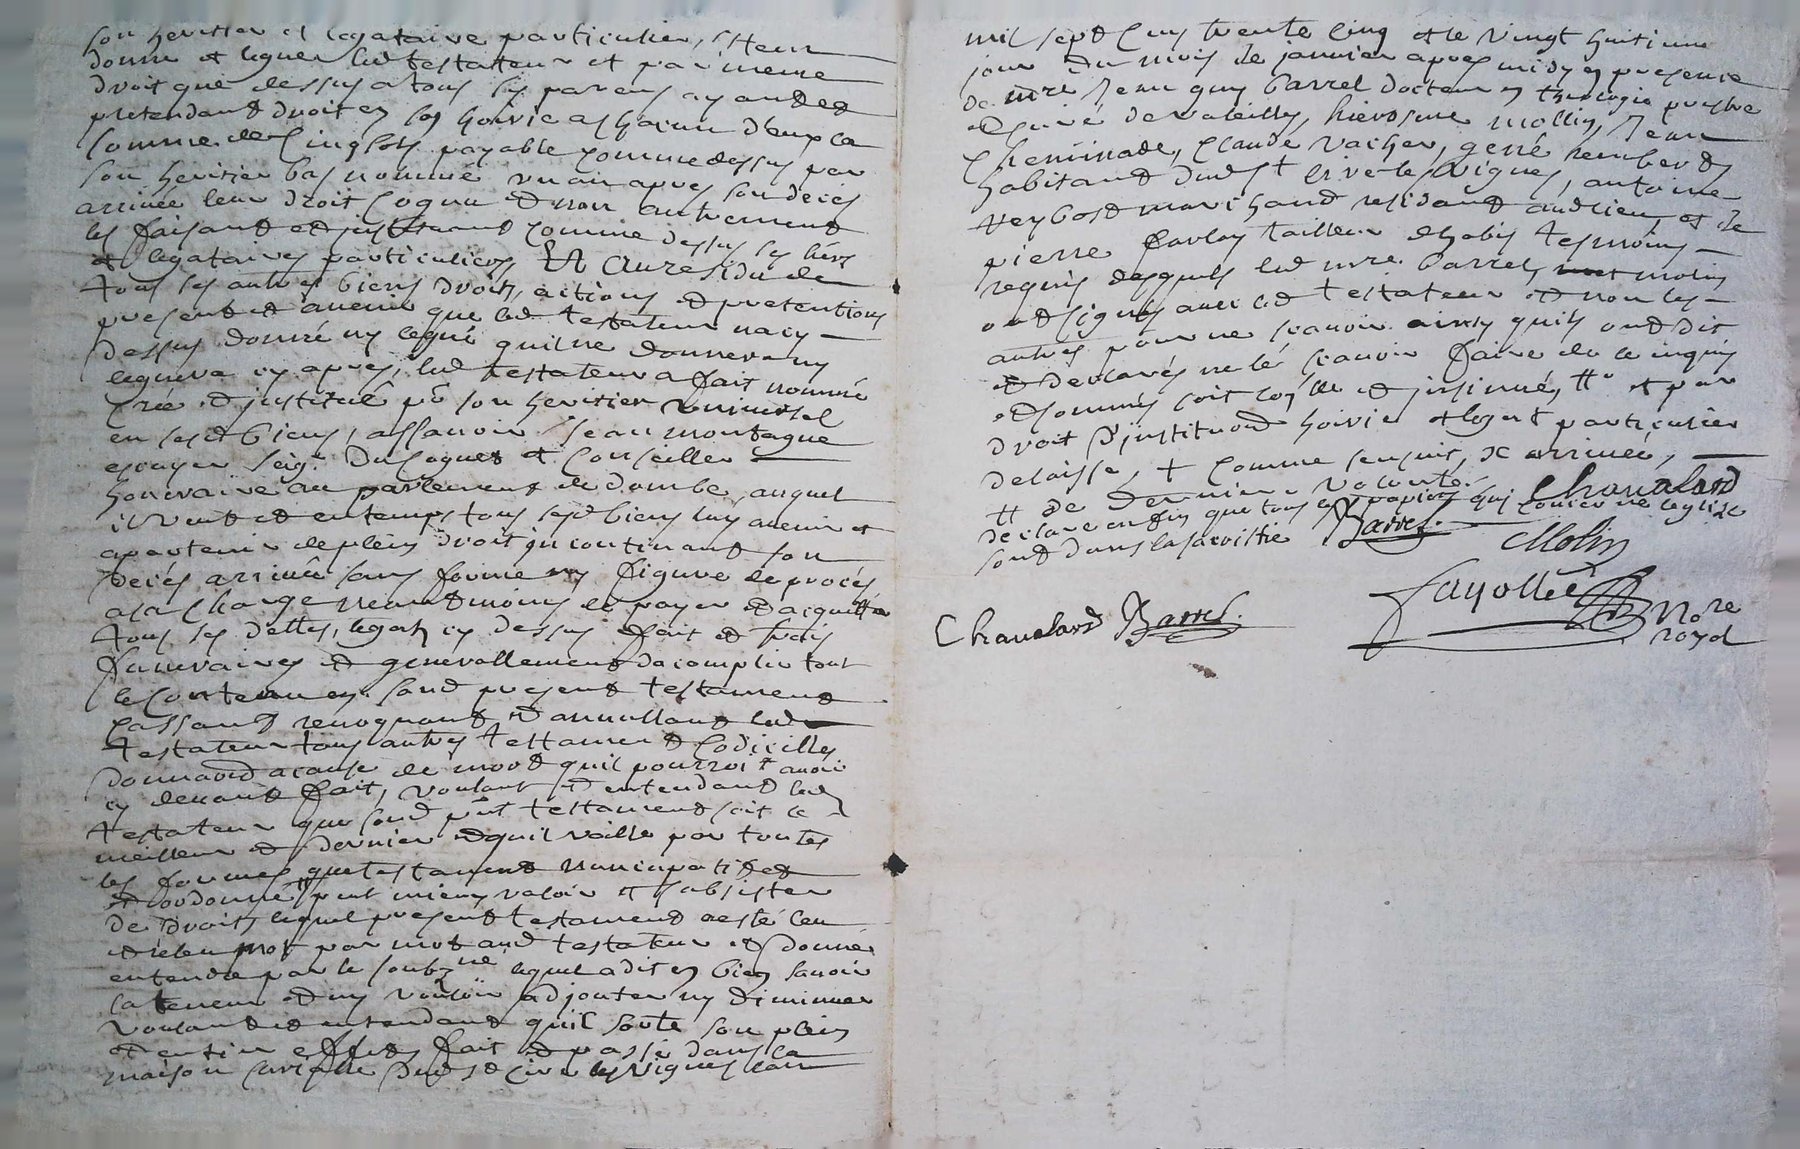 son heritier et legataire particulier, Item
donne et legue led testateur et par meme
droit que dessus a tous ses parens ayants et
pretendant droit en son hoirie a chacun d'eux la
somme de cinq sols payable comme dessus par
son heritier bas nommé un an apres son deces
arrivée leur droit cognu et non autrement
les faisant et instituant comme dessus ses hers
et legataires particuliers, Et au residu de
tous ses autres biens droits, actions et pretentions
present et avenir que led testateur na cy
dessus donné ny legué quil ne donnera ny
leguera cy apres, led testateur a fait nommé
créé et institué pr son heritier universel
en sesd biens, assavoir Jean montagne
escuyer seigr Du cognet et conseiller
honoraire au parlement de dombe, auquel
il veut et entemps tous sesd biens luy avenir et
apartenir de plein droit incontinant son
deces arrivée sans forme ny figure de proces
a la charge neantmoins de payer et acquitter
tous ses dettes, legats cy dessus fait et frais
funeraires et generallement dacomplir tout
le contenu en sond present testament
cassant revoquant et annullant led
testateur tous autres testament codicilles
donnaond a cause de mort quil pourroit avoir
cy devant fait, voulant et entendant led
testateur que sond pnt testament soit le
meilleur et dernier et quil vaille par toutes
les formes que testament nuncupatif et
et ordonné peut mieux valoir et subsister
de droit, lequel present testament a esté leu
et releu mot par mot aud testateur et donné
entendre par le soubzné lequel a dit en bien savoir
la teneur et ny vouloir adjouter ny diminuer
voulant et entendant quil sorte son plein
et entier effet, fait et passé dans la
maison curialle dud St cire les vignes lan
mil sept cens trente cinq et le vingt huitieme
jour du mois de janvier apres midy en presence
de mre Jean guy barrel docteur en theologie prestre
et curé de valeille, hierosme mollin, Jean
cheminade, claude vacher, gené rember
habitant dud St cire les vignes, antoine
verybost marchand residant aud lieu, et de
pierre tailleur dhabis tesmoins
requis desquels led mre barrel, molin
ont signés avec led testateur et non les
autres pour ne scavoir ainsy quils ont dit
et declarés ne le scavoir faire de ce enquis
et sommés soit collé et insinué, tt° et par
droit d'institution hoirie et legat particulier
delaisse, + comme sensuit, x arrivée,
tt de derniere volonté.
declare enfin que tous les papiers qui concernent leglise
sont dans la sacristie
Chavalard
Barrel
Molin
Chavalard Barrel
fayolle
Nore
royal